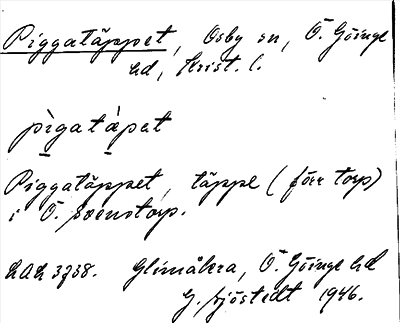 Piggatäppet, Osby sn, Ö. Göinge
hd, Krist. l.
pìgatàpat
Piggatäppet, täppe (förr torp)
i Ö. Svenstorp.
LAL 3738. Glimåkra, Ö. Göinge hd
G. Sjöstedt 1946.